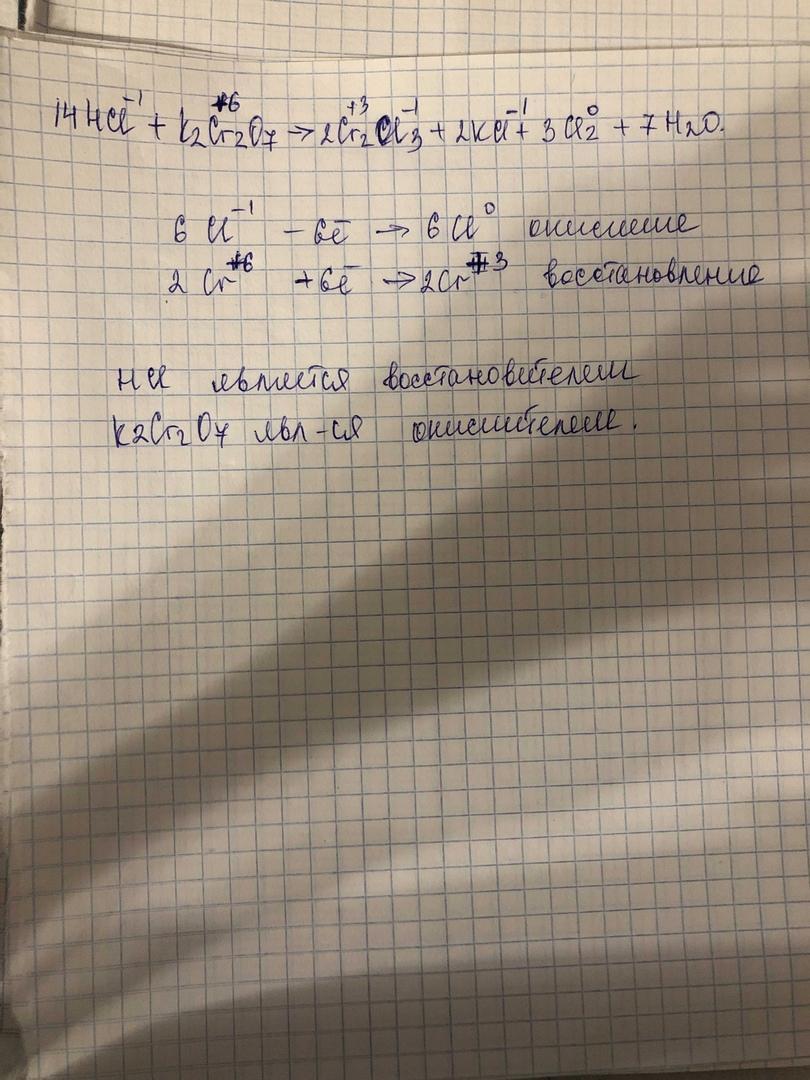 14HCl⁻¹ + K₂Cr₂⁺⁶O₇ → 2Cr₂⁺³Cl₃⁻¹ + 2KCl⁻¹ + 3Cl₂⁰ + 7H₂O.
6 Cl⁻¹ – 6ē → 6Cl⁰ окисление
2 Cr⁺⁶ +6ē → 2Cr⁺³ восстановление
HCl является восстановителем
K2Cr₂O7 явл-ся окислителем.